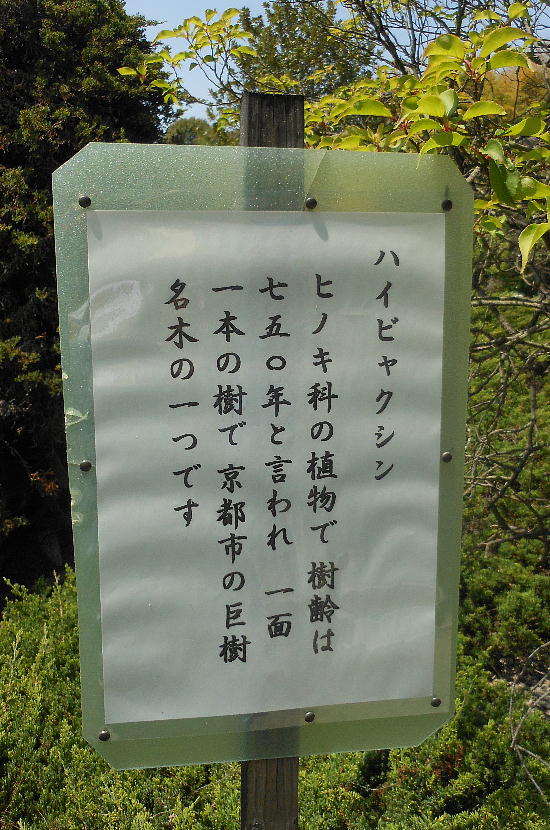 ハイビャクシン
ヒノキ科の植物で 樹齢は
七五〇年と言われ 一面
一本の樹で 京都市の巨樹
名木の一つです